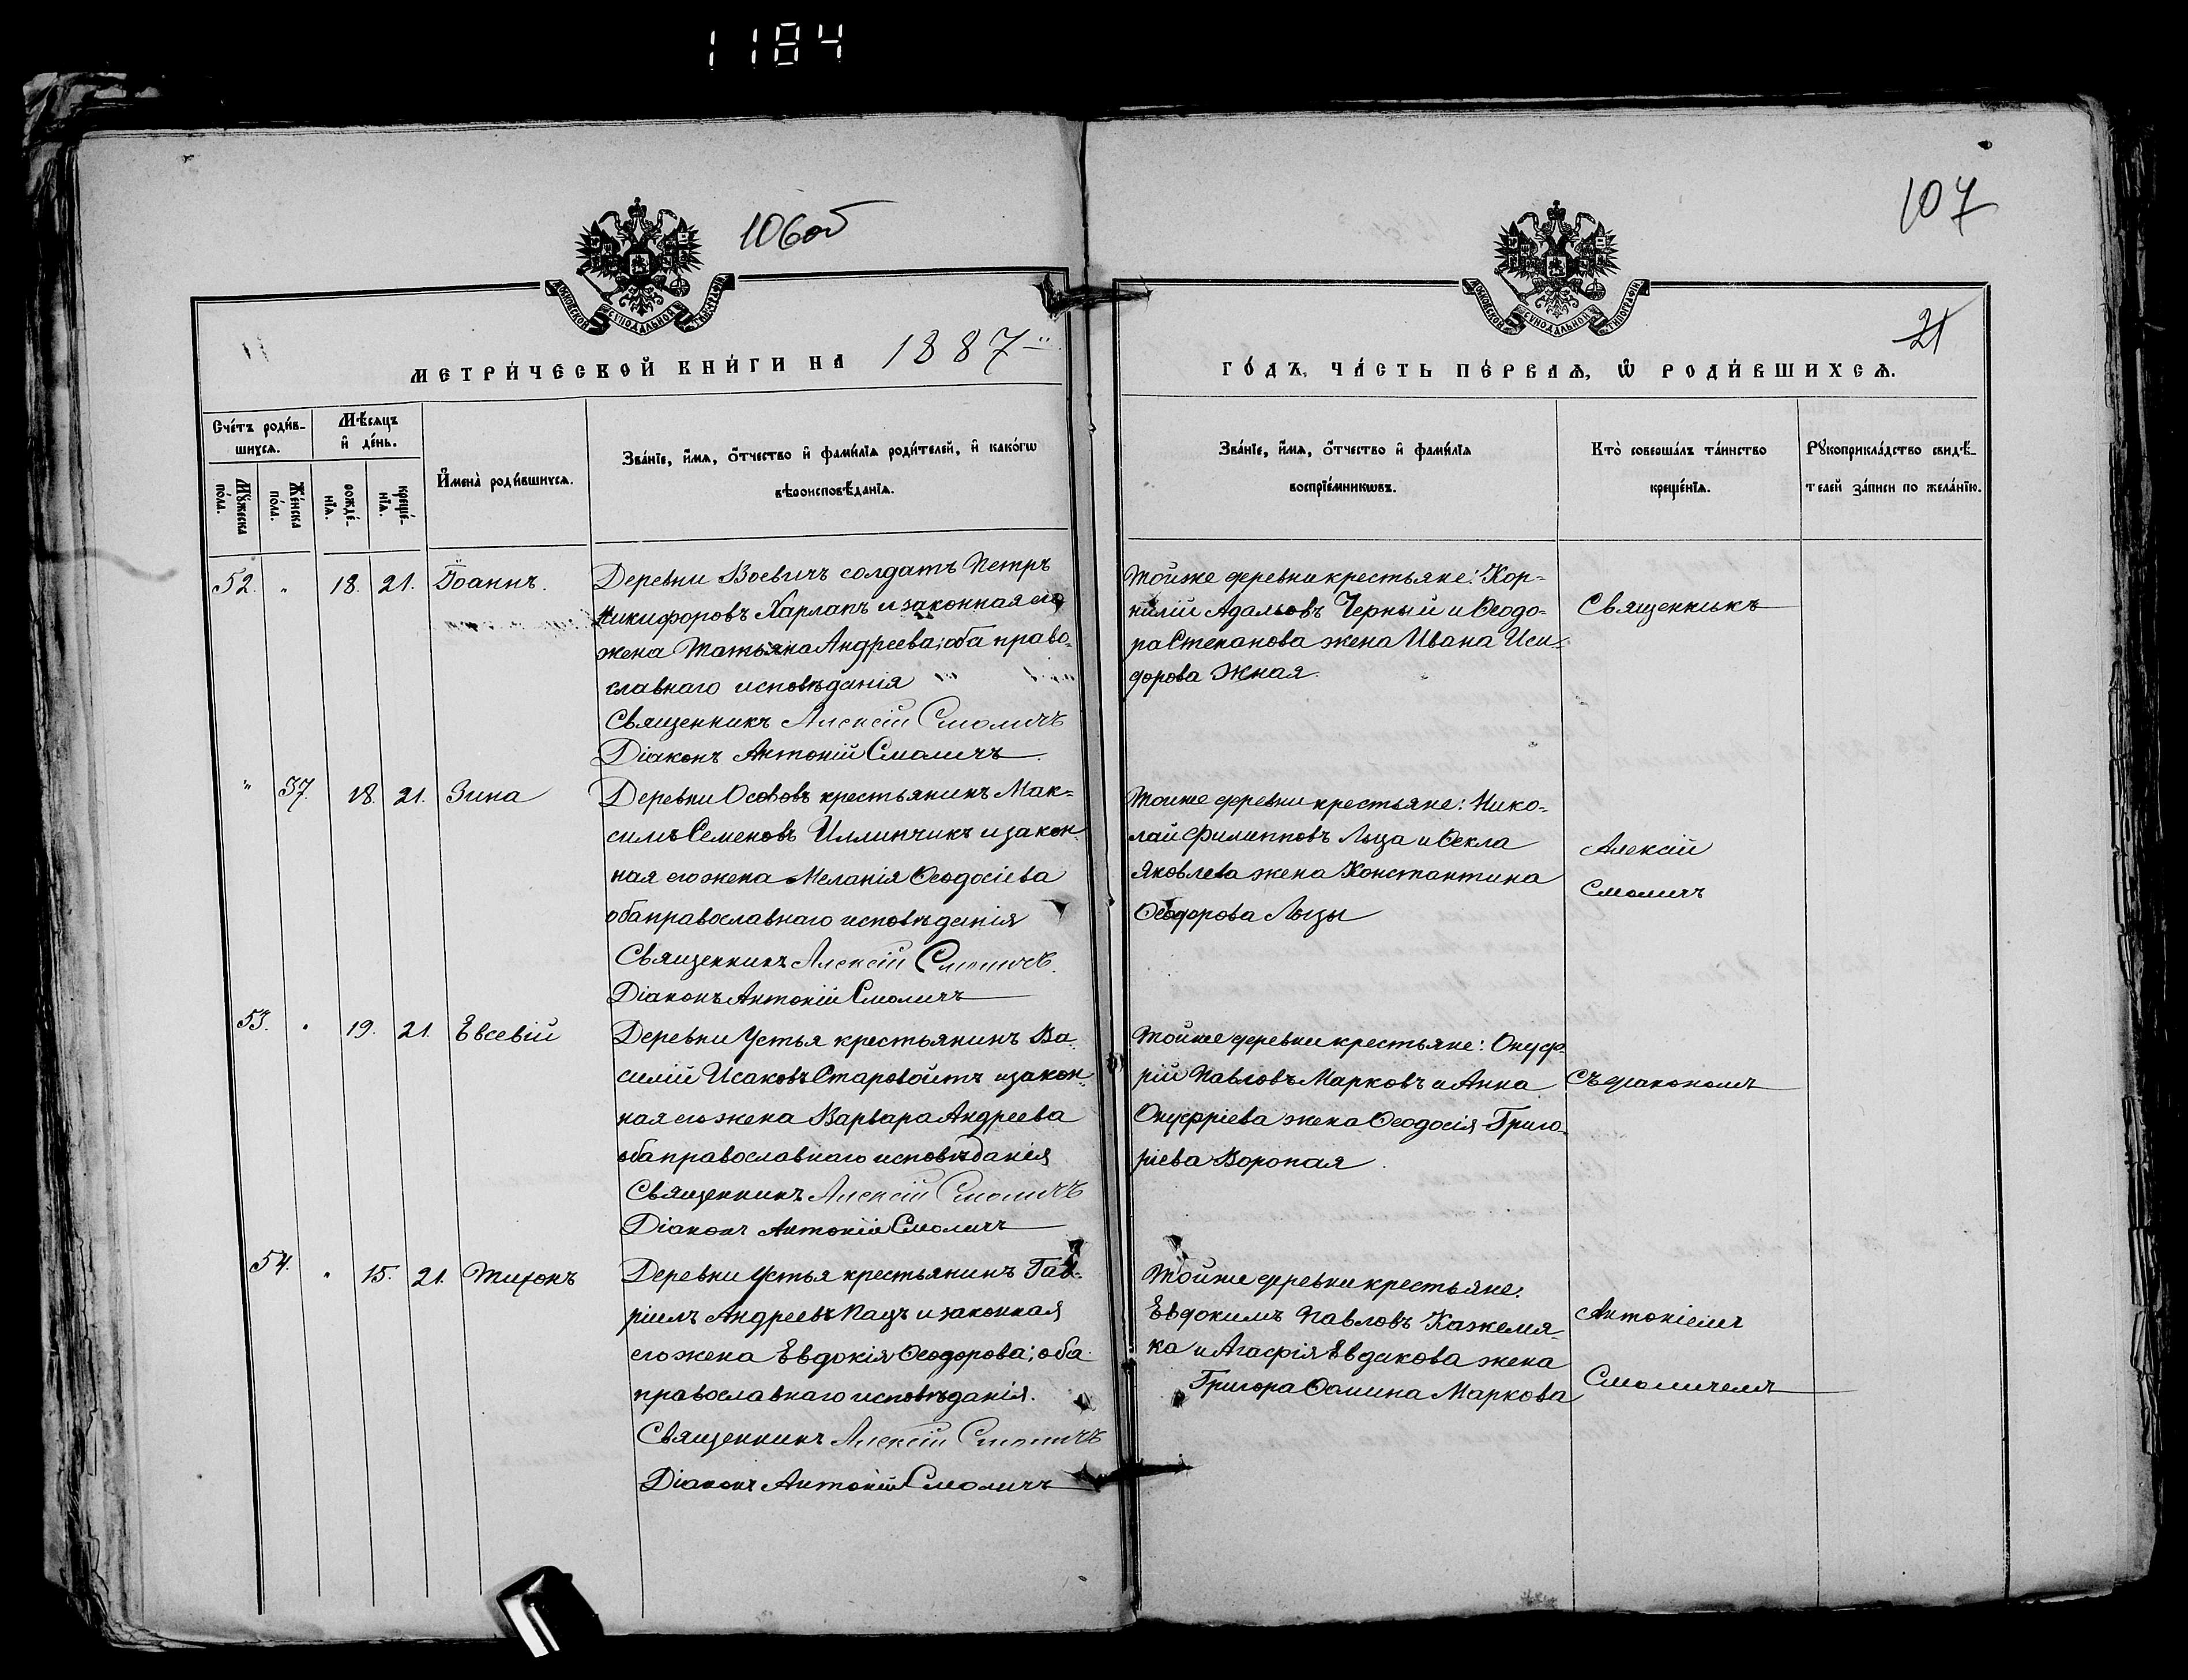 1184
106об
107
МОСКОВСКОЙ СѴНОДАЛЬНОЙ ТИПОГРАФІИ
МОСКОВСКОЙ СѴНОДАЛЬНОЙ ТИПОГРАФІИ
21
МЕТРИ́ЧЕСКОЙ КНИ́ГИ НА 1887
ГО́ДЪ, ЧА́СТЬ ПЕ́РВАѦ, Ѡ҆ РОДИ́ВШИХСѦ.
Сче́тъ роди́в-
шихсѧ.
Мꙋ́жеска по́ла.
Же́нска по́ла.
Мѣ́сѧцъ
и҆ де́нь.
рожде́-
нїѧ.
креще́-
нїѧ.
И҆мена̀ роди́вшихсѧ.
Зва́нїе, и҆́мѧ, ѻ҆́тчество и҆ фами́лїѧ роди́телей, и҆ како́гѡ
вѣроисповѣ́данїѧ.
Зва́нїе, и҆́мѧ, ѻ҆́тчество и҆ фами́лїѧ
воспрїе́мникѡвъ.
Кто̀ соверша́лъ та́инство
креще́нїѧ.
Рꙋкоприкла́дство свидѣ́-
телей за́писи по жела́нїю.
52. " 18. 21. Іоаннъ.
Деревни Воевичъ солдатъ Петръ
Никифоровъ Харлапъ и законная его
жена Татьяна Андреева; оба право-
славнаго исповѣданія
Священникъ Алексій Смоличъ
Діаконъ Антоній Смоличъ
Тойже деревни крестьяне: Кор-
нилій Адамовъ Черный и Ѳеодо-
ра Степанова жена Ивана Иси-
дорова Жная.
Священникъ
" 37. 18. 21. Зина
Деревни Осововъ крестьянинъ Мак-
симъ Семеновъ Иллинчикъ и закон-
ная его жена Меланія Ѳеодосіева
оба православнаго исповѣданія
Священникъ Алексій Смоличъ.
Діаконъ Антоній Смоличъ
Тойже деревни крестьяне: Нико-
лай Филипповъ Лыза и Ѳекла
Яковлева жена Константина
Ѳеодорова Лызы
Алексій
Смоличъ
53. " 19. 21. Евсевій
Деревни Устья крестьянинъ Ва-
силій Исаковъ Старовойтъ и закон-
ная его жена Варвара Андреева
оба православнаго исповѣданія
Священникъ Алексій Смоличъ
Діаконъ Антоній Смоличъ
Тойже деревни крестьяне: Онуф-
рій Павловъ Марковъ и Анна
Онуфріева жена Ѳеодосія Григо-
ріева Воропая.
Съ діакономъ
54. " 15. 21. Тихонъ
Деревни Устья крестьянинъ Гав-
ріилъ Андреевъ Пацъ и законная
его жена Евдокія Ѳеодорова; оба
православнаго исповѣданія.
Священникъ Алексій Смоличъ
Діаконъ Антоній Смоличъ
Тойже деревни крестьяне:
Евдокимъ Павловъ Кажемя-
ка и Агафія жена
Григора Ѳомина Маркова
Антоніемъ
Смоличемъ